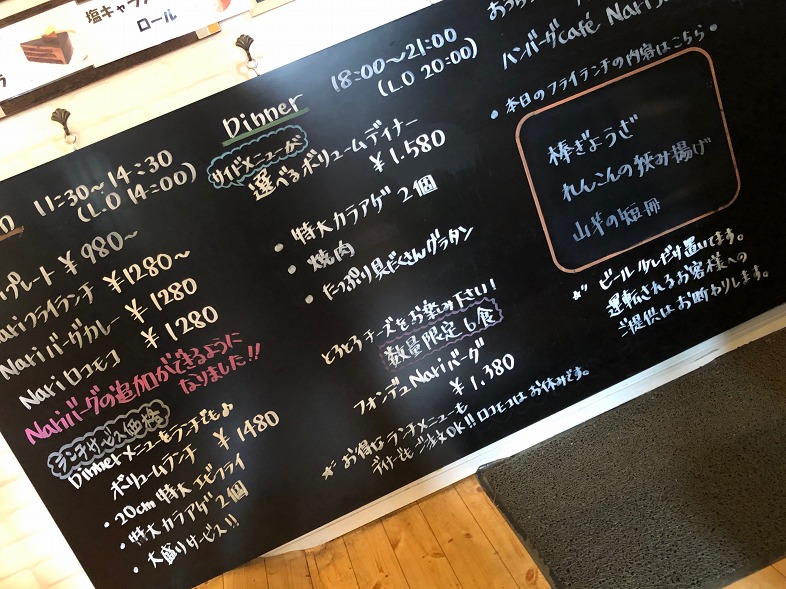 塩キャラメ
ロール
11:30〜14:30
(L.O 14:00)
プレート ¥980〜
Nariフライランチ ¥1280〜
Nariバーグカレー ¥1280
Nariロコモコ ¥1280
Nariバーグの追加ができるように
なりました!!
ランチサービス価格
Dinnerメニューをランチでも♪
ボリュームランチ ¥1480
・20cm特大エビフライ
・特大カラアゲ2個
・大盛りサービス!!
Dinner
18:00〜21:00
(L.O 20:00)
サイドメニューが
選べるボリュームディナー
¥1.580
・特大カラアゲ 2個
・焼肉
・たっぷり具だくさんグラタン
とろとろチーズをお楽み下さい!
数量限定6食
フォンデュNariバーグ
¥1.380
☆お得なランチメニューも
ディナーでもご注文OK!!ロコモコはお休みです。
ハンバーグcafé Nari
・本日のフライランチの内容はこちら・
棒ぎょうざ
れんこんの挟み揚げ
山芋の短冊
☆ビール1杯だけ置いてます。
運転されるお客様への
ご提供はお断わりします。